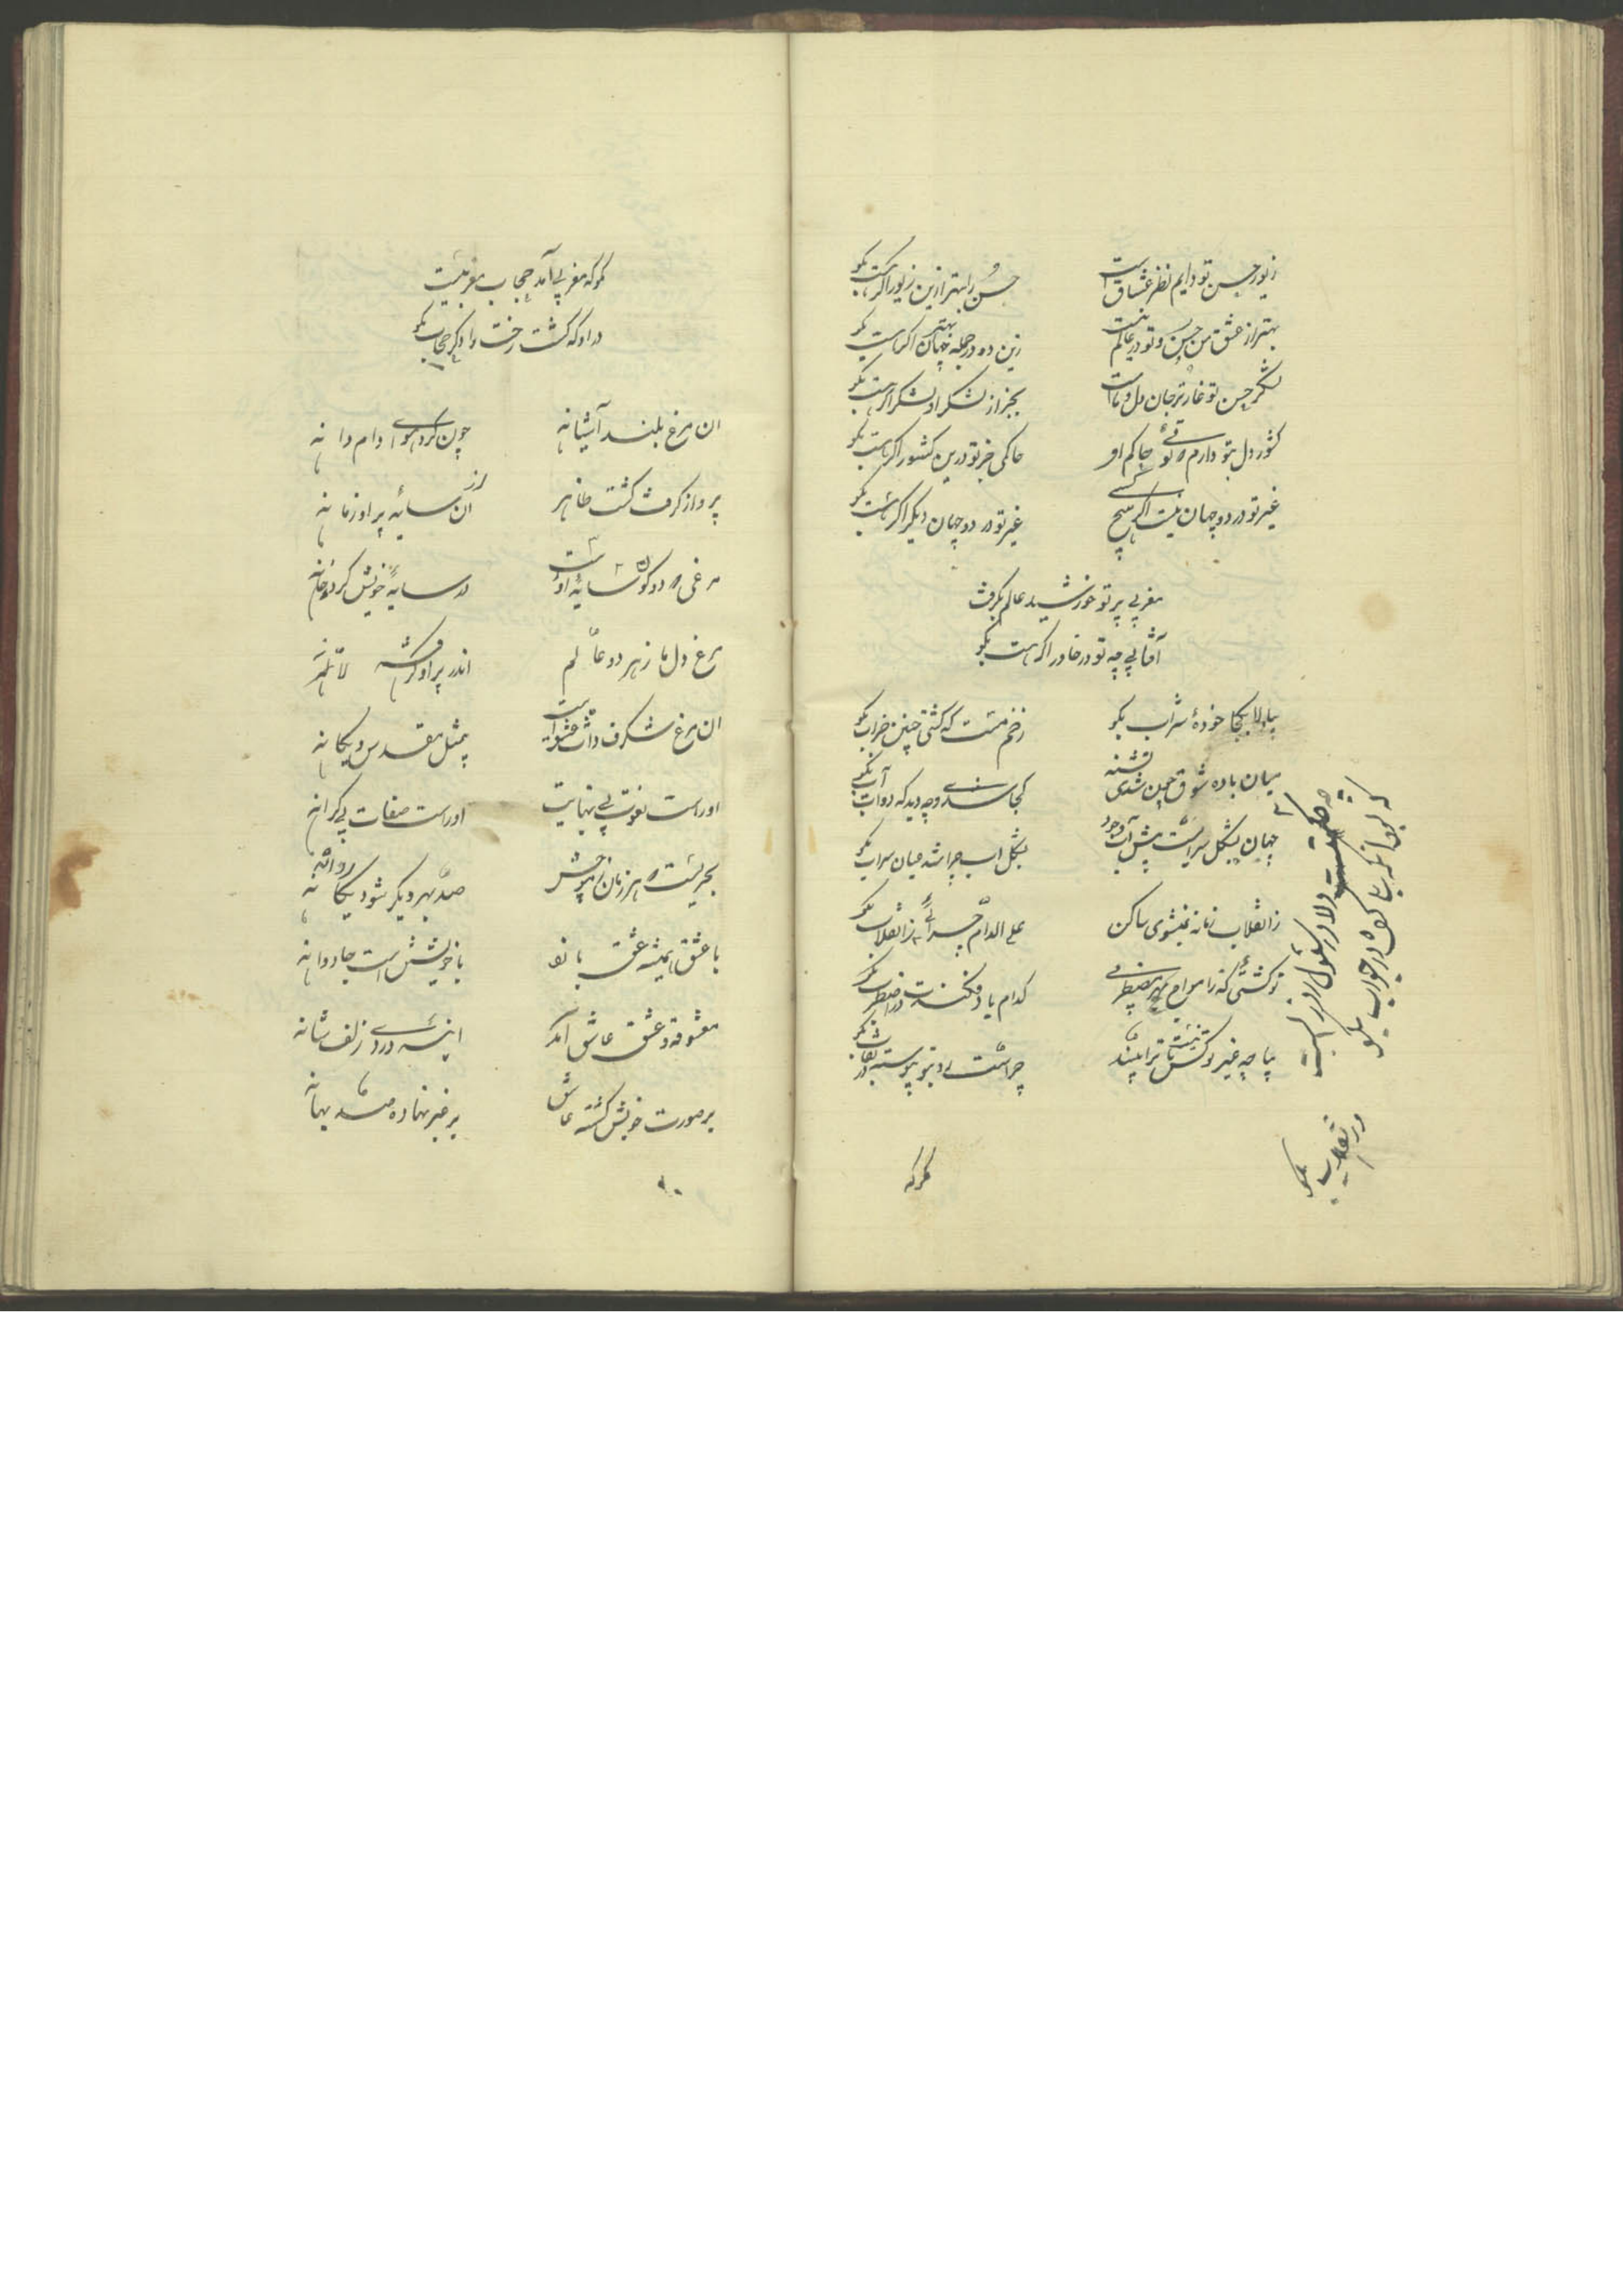 زیور حسن تو دایم نظر عشاق است
حسن را بهتر ازین زیور اگر هست بگو
بهتر از عشق من و حسن تو در عالم نیست
زین دو در جمله جهان بهتر اگر هست بگو
لشکر حسن تو غارتگر جان و دل ماست
بجز از لشکر او لشکر اگر هست بگو
کشور دل بتو دارم که توئی حاکم او
حاکمی جز تو درین کشور اگر هست بگو
غیر تو در دو جهان نیست اگر هیچ کسی
غیر تو در دو جهان دیگر اگر هست بگو
مغربی پرتو خورشید عالم بگرفت
آفتابی چه تو در خاور اگر هست بگو
بیا دلا بکجا خوردهٔ شراب بگو
ز خم کیست که گشتی چنین خراب بگو
میان باده شوق چون شدی تشنه
کجا شدی و چه دید که دوات آب بگو
جهان بشکل سرابست پیش آب وجود
بشکل آب چرا شد عیان سراب بگو
ز انقلاب زمانه نمیشوی ساکن
علی الدوام چرائی ز انقلاب بگو
تو کشتی که ز امواج بحر مضطربی
کدام باد فکندت در اضطراب بگو
بیا چه غیر تو کس نیست تا ترا بیند
چراست روی تو پیوسته در نقاب بگو
چه حکمتست دلا در سئول روز الست
که بود آنکه بما گفت در جواب بگو
در نقاب بگو
مگر که
مگر که مغربی آمد حجاب مغربیت
در او که گشت رخت را دگر حجاب بگو
ان مرغ بلند آشیانه
چون کرد هوای دام دانه
پرواز گرفت گشت ظاهر
از ان سایه پر او زمانه
مرغی که دو کون سایهٔ اوست
در سایهٔ خویش کرده خانه
مرغ دل ما ز هر دو عالم
اندر پر او گرفته لانه
ان مرغ شگرف ذات عشق است
بیمثل مقدس و یگانه
اوراست نعوت بی نهایت
اوراست صفات بی کرانه
بحریست که هر زمان ز موجش
صد بحر دیگر شود روانه
با عشق همیشه عشق بازد
با خویشتن است جاودانه
معشوقه و عشق عاشق آمد
اینه و روی زلف شانه
بر صورت خویش گشته عاشق
بر غیر نهاده صد بهانه